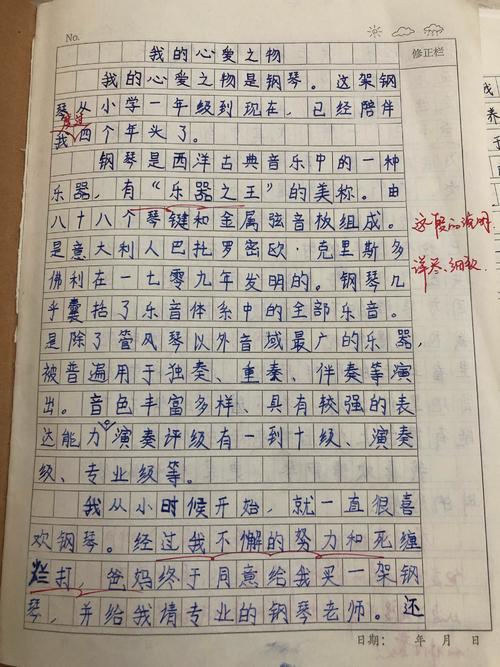 No.
修正栏
我的心爱之物
我的心爱之物是钢琴。这架钢
琴从小学一年级到现在，已经陪伴
度过
我四个年头了。
钢琴是西洋古典音乐中的一种
乐器，有“乐器之王”的美称。由
八十八个琴键和金属弦音板组成。
这段的说明
是意大利人巴托罗密欧·克里斯多
详尽、细致
佛利在一七零九年发明的。钢琴几
乎囊括了乐音体系中的全部乐音。
是除了管风琴以外音域最广的乐器，
被普遍用于独奏、重奏、伴奏等演
出。音色丰富多样、具有较强的表
达能力。演奏评级有一到十级、演奏
级、专业级等。
我从小时候开始，就一直很喜
欢钢琴。经过我不懈的努力和死缠
烂打，爸妈终于同意给我买一架钢
琴，并给我请专业的钢琴老师。还
日期： 年 月 日